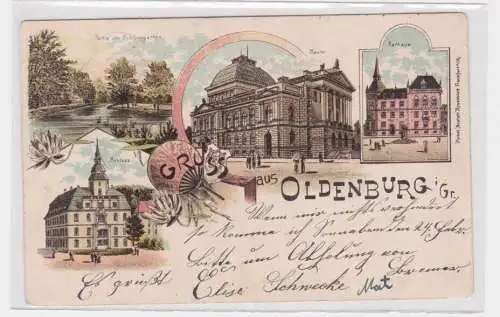 Partie des Schlossgarten
Theater
Rathaus
Schloss
GRUSS
aus
OLDENBURG i/Gr.
Wenn mir nichts verhindert
so komme ich Sonnabend den 24. Febr.
Bitte um Abholung von
Bremer
Es grüßt
Elise Schwecke
Mat